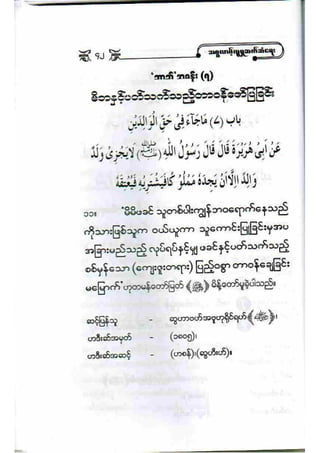 ၄၂ အစ္စလာမ့်လူမှုဆက်ဆံရေး
'ဘာဘ်' အခန်း (၇)
မိဘနှင့်ပတ်သက်သည့်တာဝန်ဖော်ပြခြင်း
باب (٧) مَاجَآءَ فِى حَقِّ الْوَالِدَيْنِ
عَنْ اَبِى هُرَيْرَةَ قَالَ قَالَ رَسُوْلُ اللهِ (ﷺ) لَايَجْزِى وَلَدٌ
وَالِدًا اِلَّا اَنْ يَجِدَهُ مَمْلُوْكًا فَيَشْتَرِيْهِ فَيُعْتِقَهُ
၁၁။ 'မိမိဖခင် သူတစ်ပါးကျွန်ဘဝရောက်နေသည်
ကိုသားဖြစ်သူက ဝယ်ယူကာ သူကောင်းပြုခြင်းမှအပ
အခြားမည်သည့် လုပ်ရပ်နှင့်မျှ ဖခင်နှင့်ပတ်သက်သည့်
စစ်မှန်သော (ကျေးဇူးတရား) ပြည့်ဝစွာ တာဝန်ချေခြင်း
မမြောက်' ဟုတမန်တော်မြတ် (ﷺ) မိန့်တော်မူခဲ့ပါသည်။
ဆင့်ပြန်သူ - ဆွဟာဗဟ်အဗူဟုရိုင်ရဟ် (ﷺ)။
ဟဒီးဆ်အမှတ် - (၁၈၀၅)။
ဟဒီးဆ်အဆင့် - (ဟစန်)၊ (ဆွဟီးဟ်)။